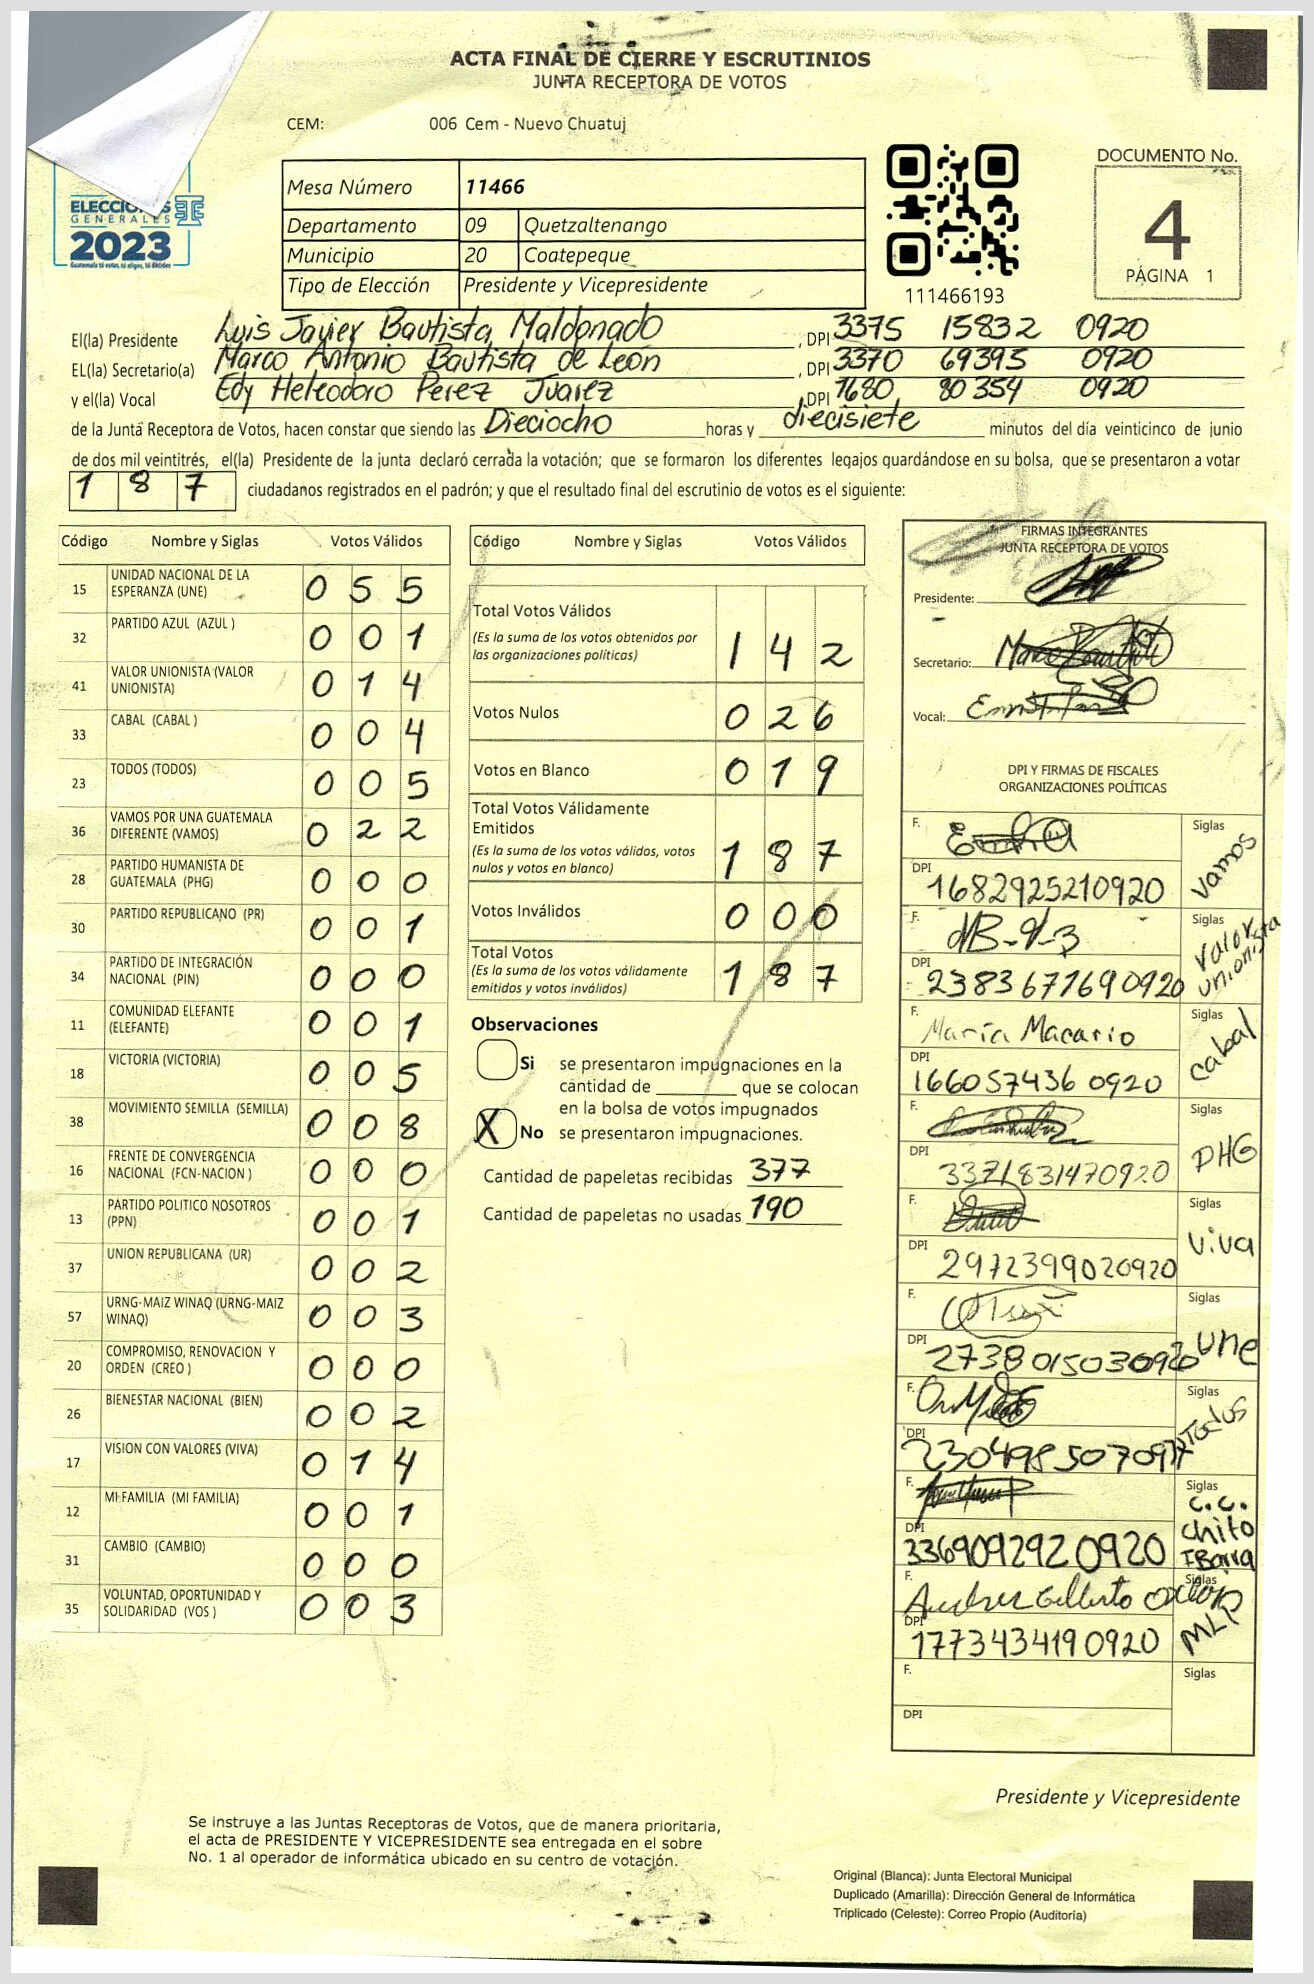 ACTA FINAL DE CIERRE Y ESCRUTINIOS
JUNTA RECEPTORA DE VOTOS
CEM: 006 Cem - Nuevo Chuatuj
ELECCIONES
GENERALES
2023
Mesa Número 11466
Departamento 09 Quetzaltenango
Municipio 20 Coatepeque
Tipo de Elección Presidente y Vicepresidente
111466193
DOCUMENTO No.
4
PÁGINA 1
El(la) Presidente Luis Javier Bautista Maldonado, DPI 3375 15832 0920
EL(la) Secretario(a) Marco Antonio Bautista de León, DPI 3370 69395 0920
y el(la) Vocal Edy Heleodoro Perez Juarez, DPI 1680 80354 0920
de la Junta Receptora de Votos, hacen constar que siendo las Dieciocho horas y diecisiete minutos del día veinticinco de junio
de dos mil veintitrés, el(la) Presidente de la junta declaró cerrada la votación; que se formaron los diferentes legajos guardándose en su bolsa, que se presentaron a votar
187 ciudadanos registrados en el padrón; y que el resultado final del escrutinio de votos es el siguiente:
Código Nombre y Siglas Votos Válidos
15 UNIDAD NACIONAL DE LA ESPERANZA (UNE) 055
32 PARTIDO AZUL (AZUL ) 001
41 VALOR UNIONISTA (VALOR UNIONISTA) 014
33 CABAL (CABAL ) 004
23 TODOS (TODOS) 005
36 VAMOS POR UNA GUATEMALA DIFERENTE (VAMOS) 022
28 PARTIDO HUMANISTA DE GUATEMALA (PHG) 000
30 PARTIDO REPUBLICANO (PR) 001
34 PARTIDO DE INTEGRACIÓN NACIONAL (PIN) 000
11 COMUNIDAD ELEFANTE (ELEFANTE) 001
18 VICTORIA (VICTORIA) 005
38 MOVIMIENTO SEMILLA (SEMILLA) 008
16 FRENTE DE CONVERGENCIA NACIONAL (FCN-NACION ) 000
13 PARTIDO POLITICO NOSOTROS (PPN) 001
37 UNION REPUBLICANA (UR) 002
57 URNG-MAIZ WINAQ (URNG-MAIZ WINAQ) 003
20 COMPROMISO, RENOVACION Y ORDEN (CREO ) 000
26 BIENESTAR NACIONAL (BIEN) 002
17 VISION CON VALORES (VIVA) 014
12 MI FAMILIA (MI FAMILIA) 001
31 CAMBIO (CAMBIO) 000
35 VOLUNTAD, OPORTUNIDAD Y SOLIDARIDAD (VOS ) 003
Código Nombre y Siglas Votos Válidos
Total Votos Válidos 142
(Es la suma de los votos obtenidos por
las organizaciones políticas)
Votos Nulos 026
Votos en Blanco 019
Total Votos Válidamente
Emitidos 187
(Es la suma de los votos válidos, votos
nulos y votos en blanco)
Votos Inválidos 000
Total Votos 187
(Es la suma de los votos válidamente
emitidos y votos inválidos)
Observaciones
Si se presentaron impugnaciones en la
cantidad de ________ que se colocan
en la bolsa de votos impugnados
X No se presentaron impugnaciones.
Cantidad de papeletas recibidas 377
Cantidad de papeletas no usadas 190
FIRMAS INTEGRANTES
JUNTA RECEPTORA DE VOTOS
Presidente:
Secretario:
Vocal:
DPI Y FIRMAS DE FISCALES
ORGANIZACIONES POLÍTICAS
F. Siglas Vamos
DPI 1682925210920
F. Siglas Valor unionista
DPI 2383677690920
F. María Macario Siglas cabal
DPI 1660574360920
F. Siglas PHG
DPI 3371831470920
F. Siglas Viva
DPI 2972399020920
F. Siglas une
DPI 2738015030920
F. Siglas Todos
DPI
F. Siglas C.C. Chito IBarra
DPI 3369092920920
F. Siglas MLP
DPI 1773434190920
F. Siglas
DPI
Presidente y Vicepresidente
Se instruye a las Juntas Receptoras de Votos, que de manera prioritaria,
el acta de PRESIDENTE Y VICEPRESIDENTE sea entregada en el sobre
No. 1 al operador de informática ubicado en su centro de votación.
Original (Blanca): Junta Electoral Municipal
Duplicado (Amarilla): Dirección General de Informática
Triplicado (Celeste): Correo Propio (Auditoría)